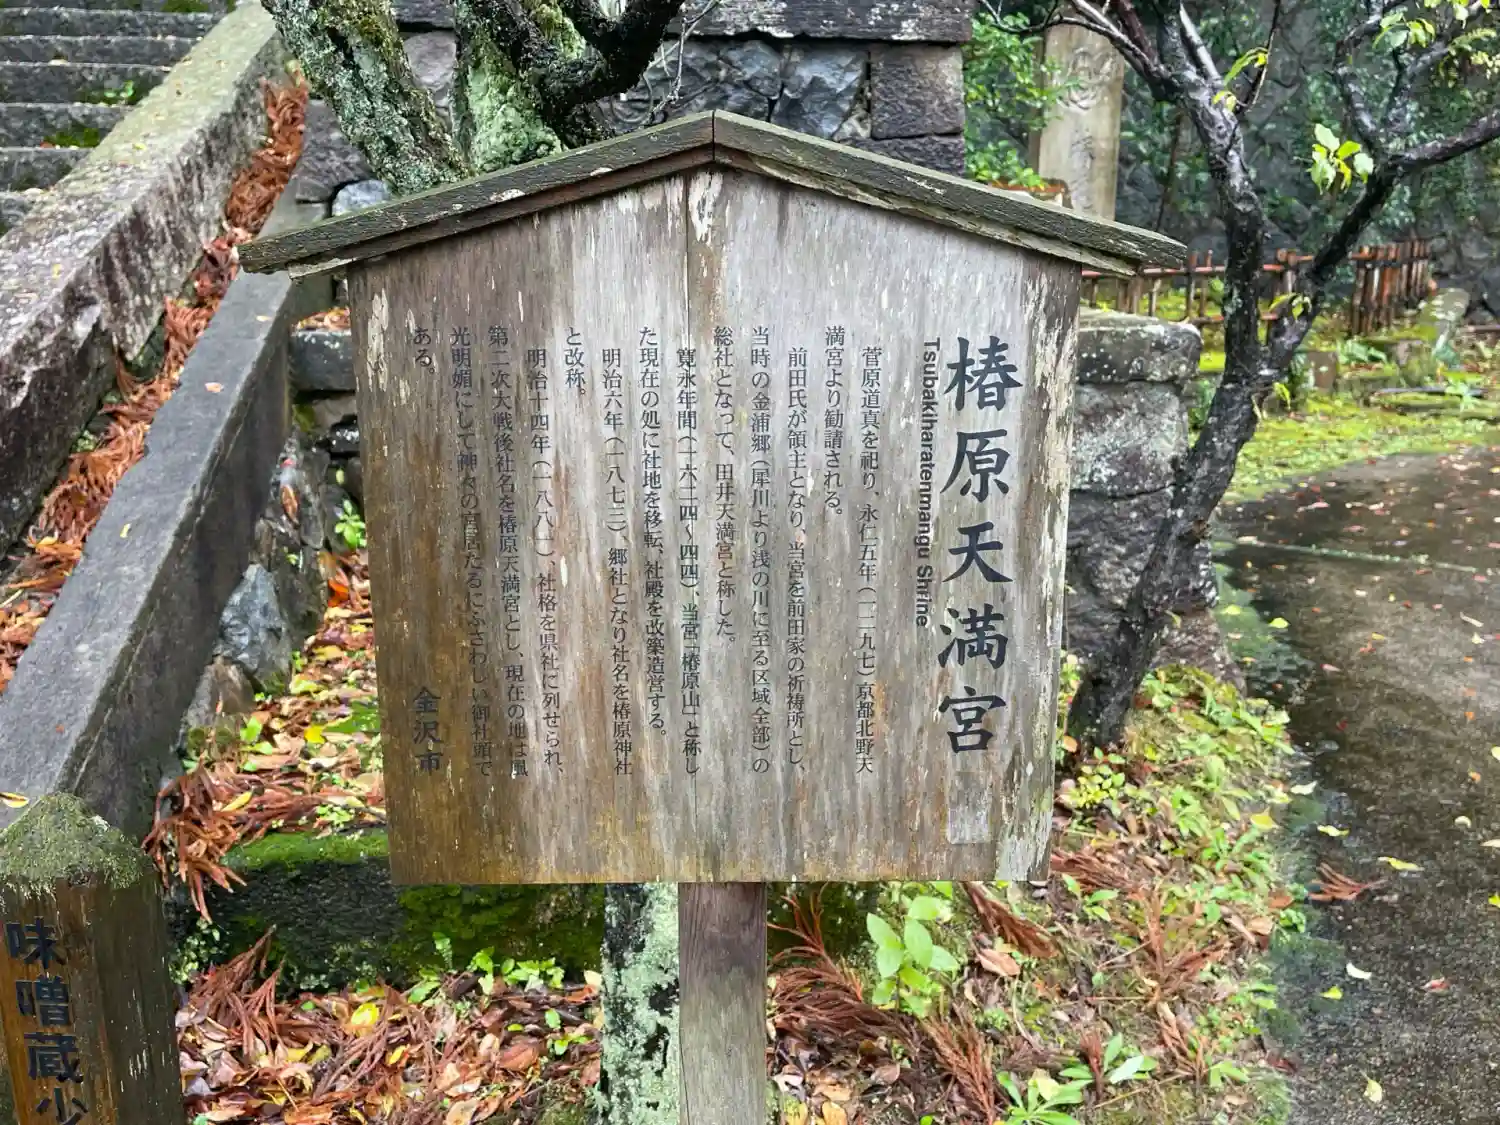 椿原天満宮
Tsubakiharatenmangu Shrine
菅原道真を祀り、永仁五年(一二九七)京都北野天
満宮より勧請される。
前田氏が領主となり、当宮を前田家の祈祷所とし、
当時の金浦郷(犀川より浅の川に至る区域全部)の
総社となって、田井天満宮と称した。
寛永年間(一六二四〜四四)、当宮「椿原山」と称し
た現在の処に社地を移転、社殿を改築造営する。
明治六年(一八七三)、郷社となり社名を椿原神社
と改称。
明治十四年(一八八一)、社格を県社に列せられ、
第二次大戦後社名を椿原天満宮とし、現在の地は風
光明媚にして神々の宮居たるにふさわしい御社頭で
ある。
金沢市
味噌蔵